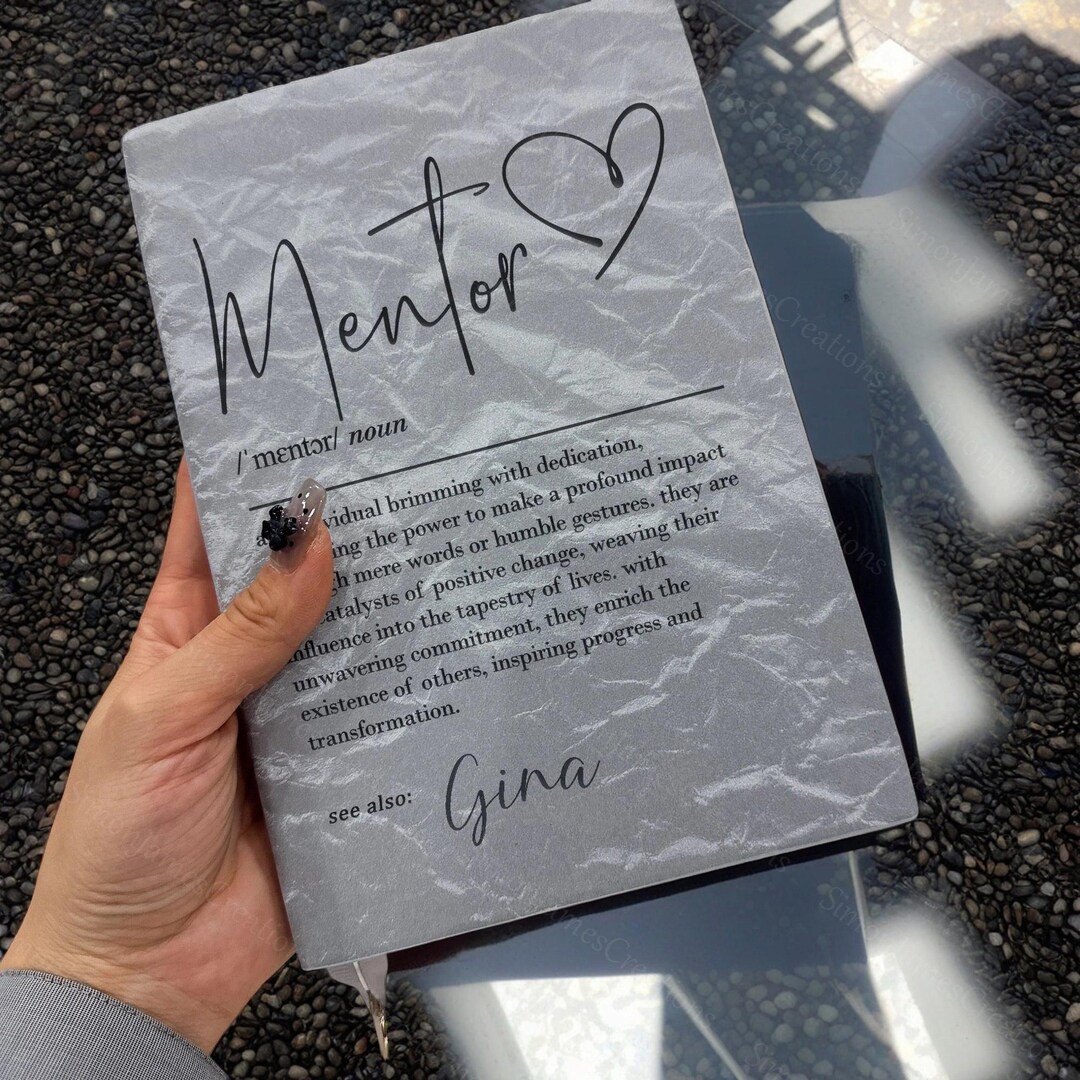 Mentor
/ˈmɛntɔr/ noun
brimming with dedication,
the power to make a profound impact
mere words or humble gestures. they are
catalysts of positive change, weaving their
influence into the tapestry of lives. with
unwavering commitment, they enrich the
existence of others, inspiring progress and
transformation.
see also: Gina